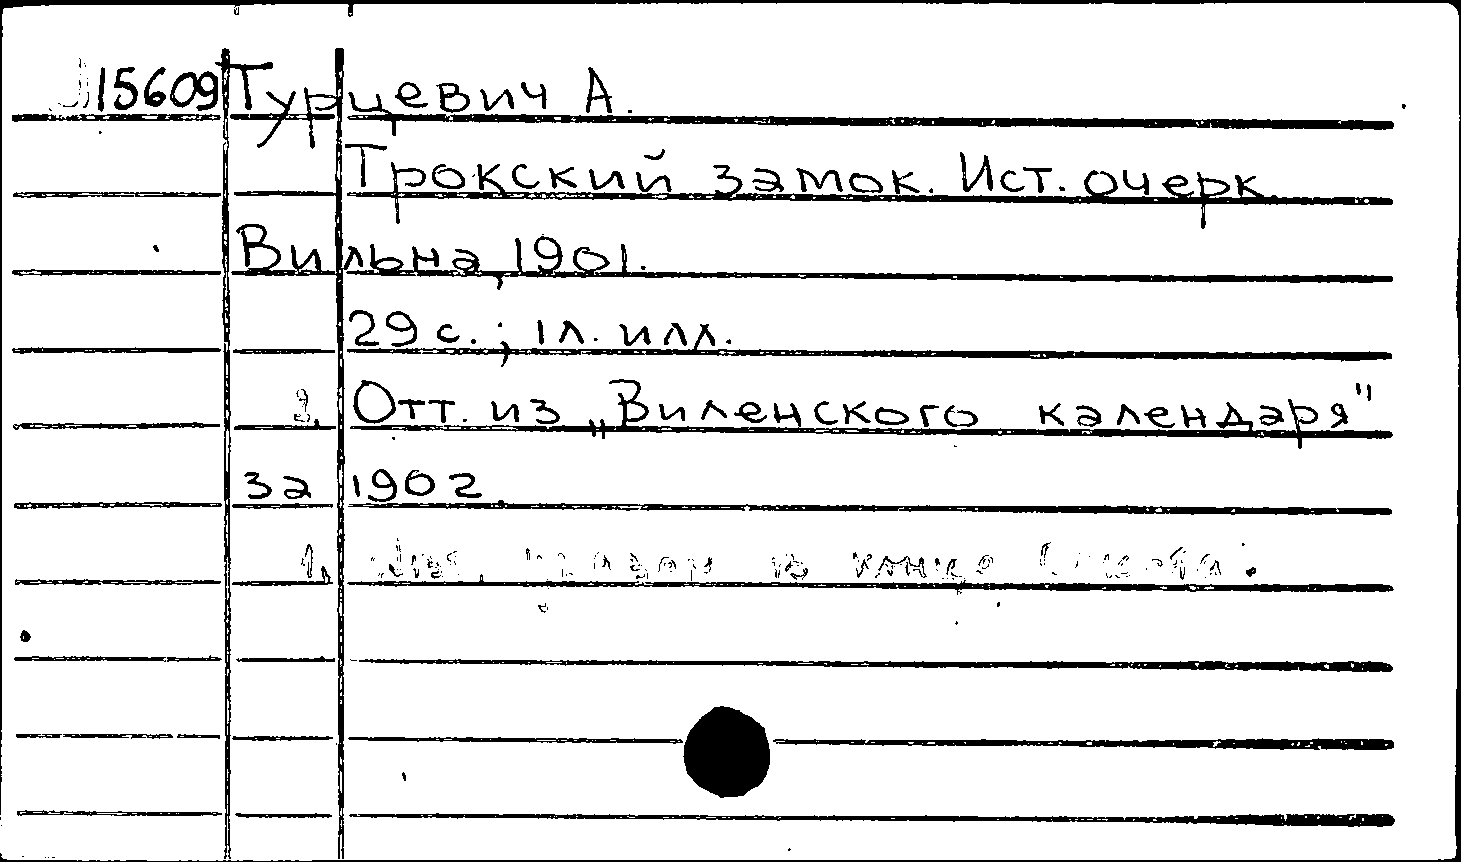 15609 Турцевич А.
Трокский замок. Ист. очерк.
Вильна, 1901.
29 с.; 1 л. илл.
Отт. из „Виленского календаря"
за 1902.
1. в конце